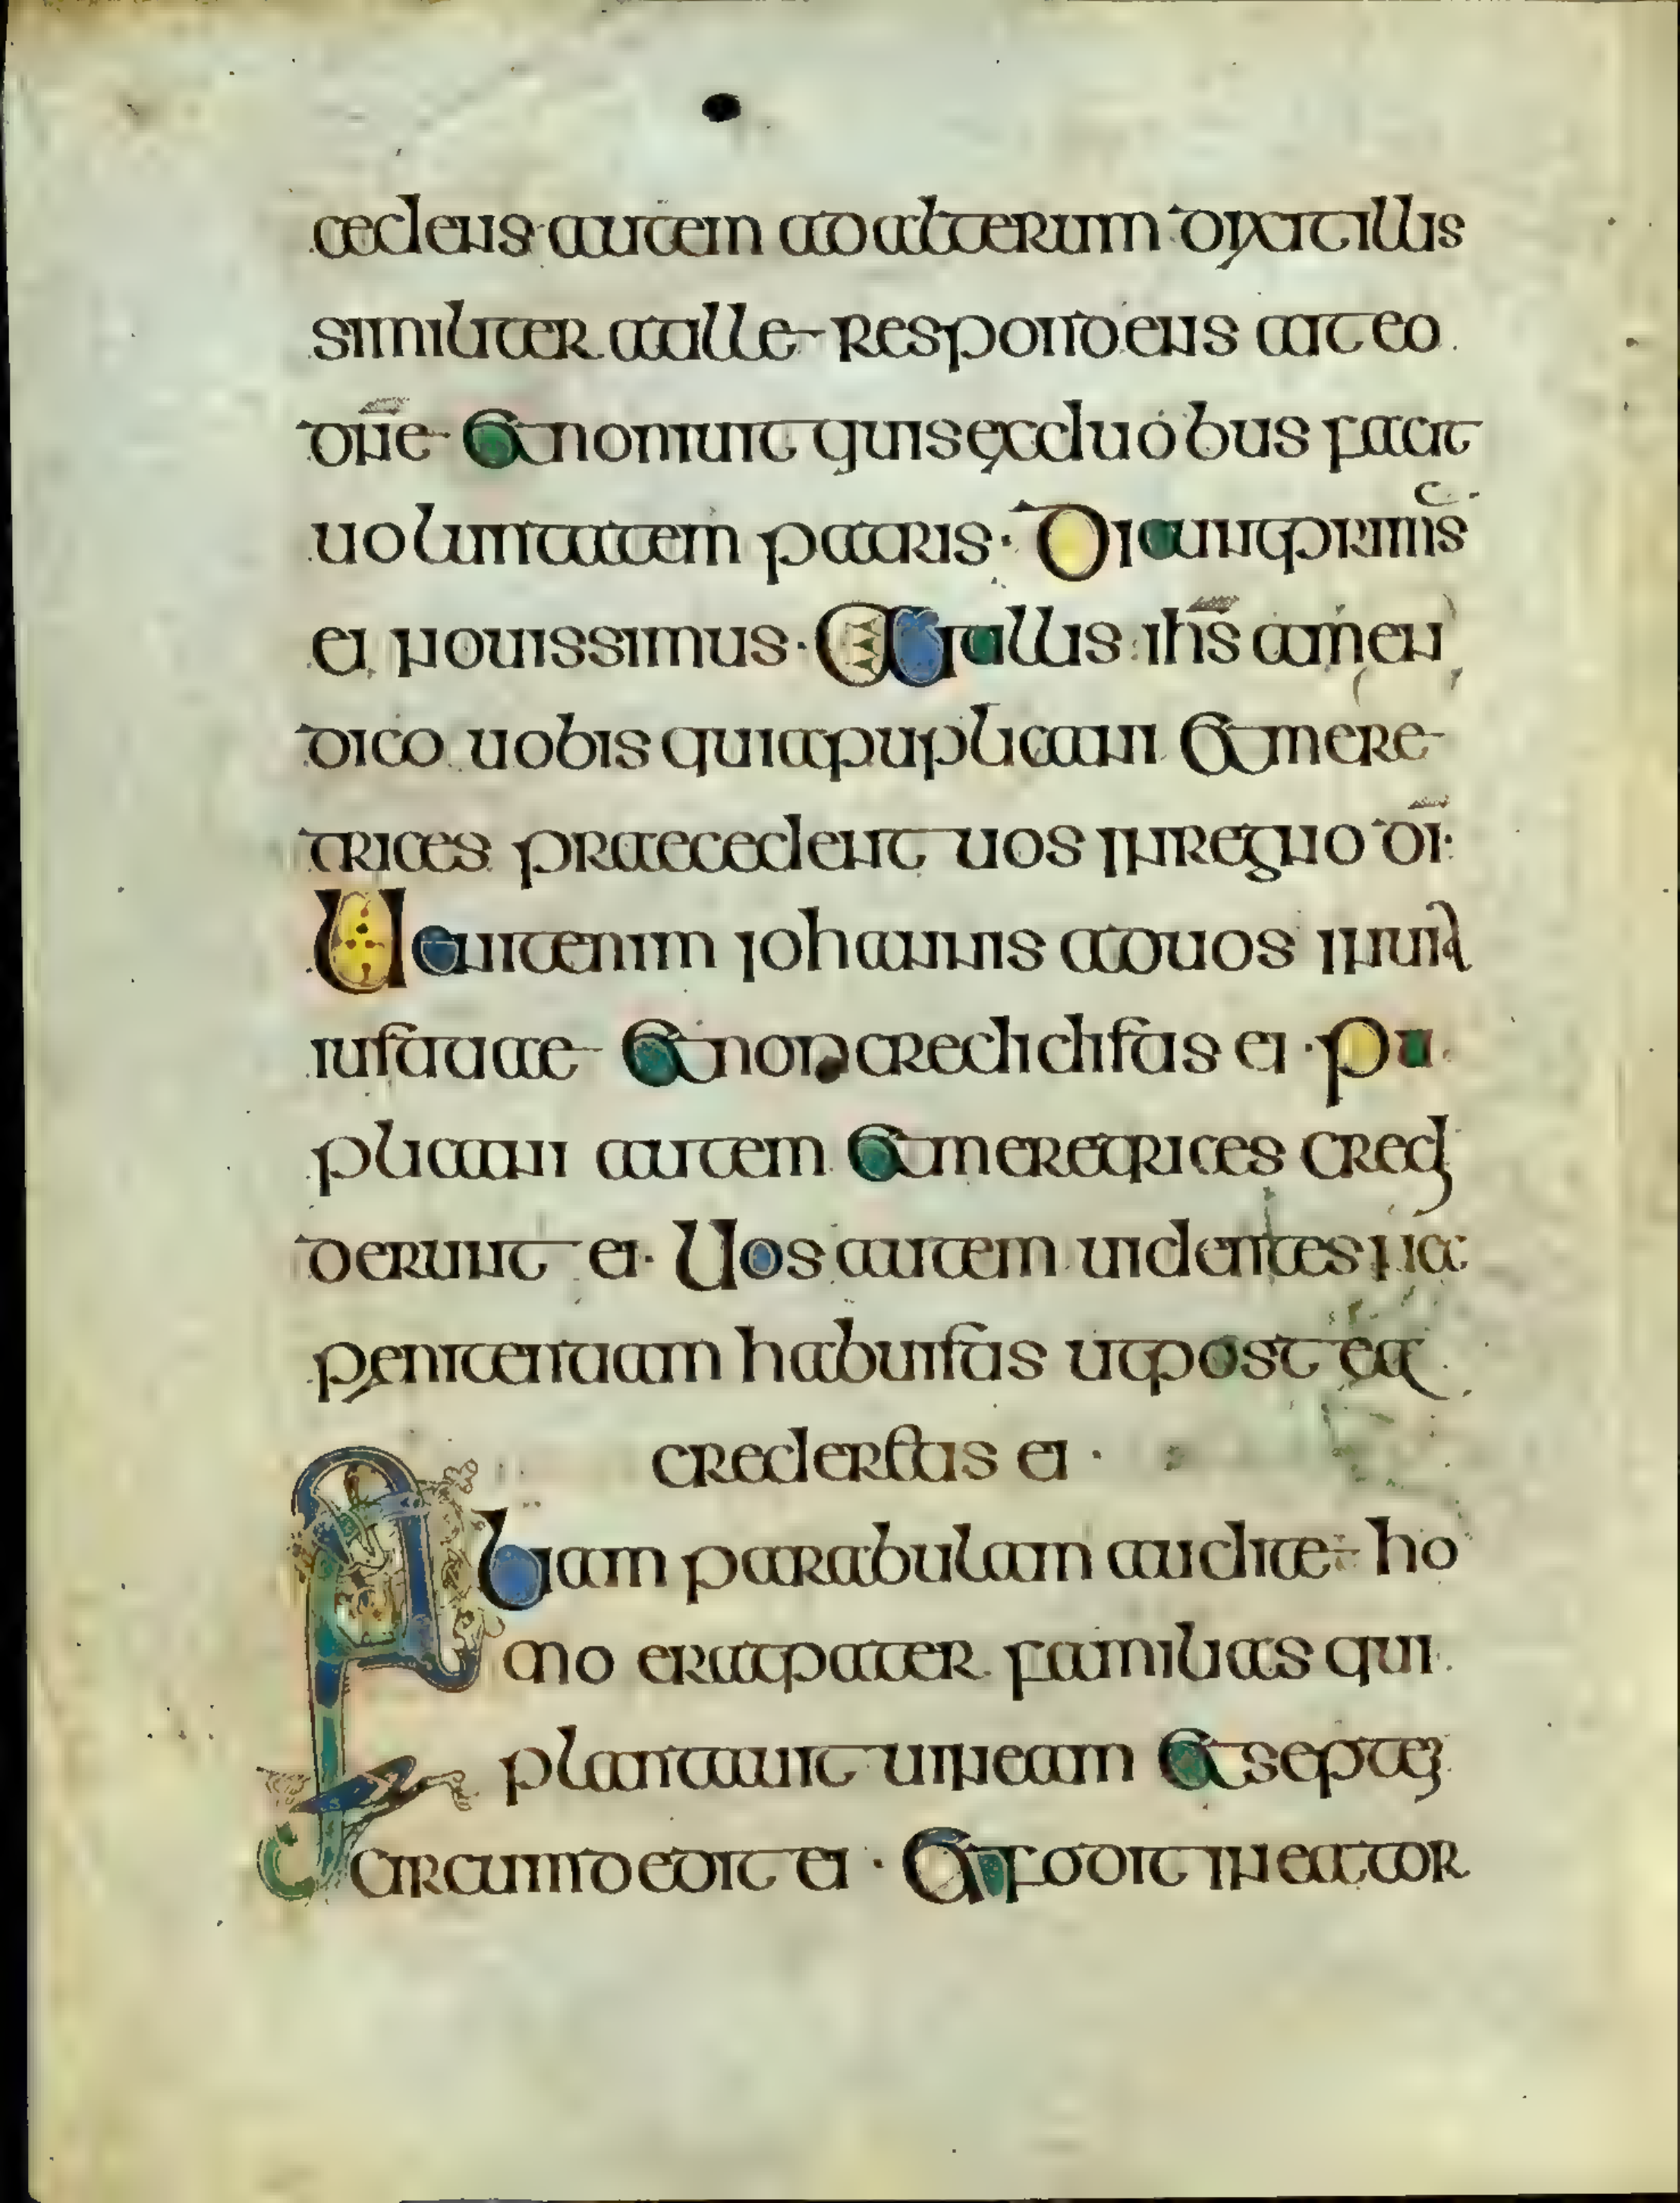 cedens autem ad alterum dixit illis
similiter at ille respondens ait eo
dn̄e et non iuit quis ex duobus facit
uoluntatem patris · Dicunt primus
ei nouissimus · Ait illis ihs̄ amen
dico uobis quia puplicani et mere
trices praecedent uos in regno dī ·
Uenit enim iohannis ad uos in uia
iustitiae et non credidistis ei · Pu
plicani autem et meretrices credi
derunt ei · Uos autem uidentes nec
penitentiam habuistis ut post ea
credertis ei ·
Aliam parabulam audite ho
mo erat pater familias qui
plantauit uineam et septem
circumdedit ei · Et fodit in ea tor